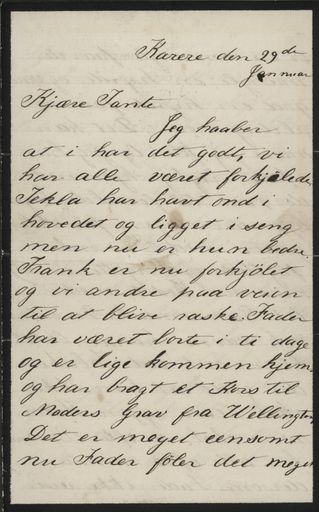 Karere den 29de
Januar
Kjære Tante
Jeg haaber
at i har det godt, vi
har alle været forkjølede
Tekla har havt ond i
hovedet og ligget i seng
men nu er hun bedre.
Frank er nu forkjölet
og vi andre paa veien
til at blive raske. Fader
har været borte i ti dage
og er lige kommen hjem
og har bragt et Kors til
Moders Grav fra Wellington
Det er meget eensomt
nu Fader föler det meget